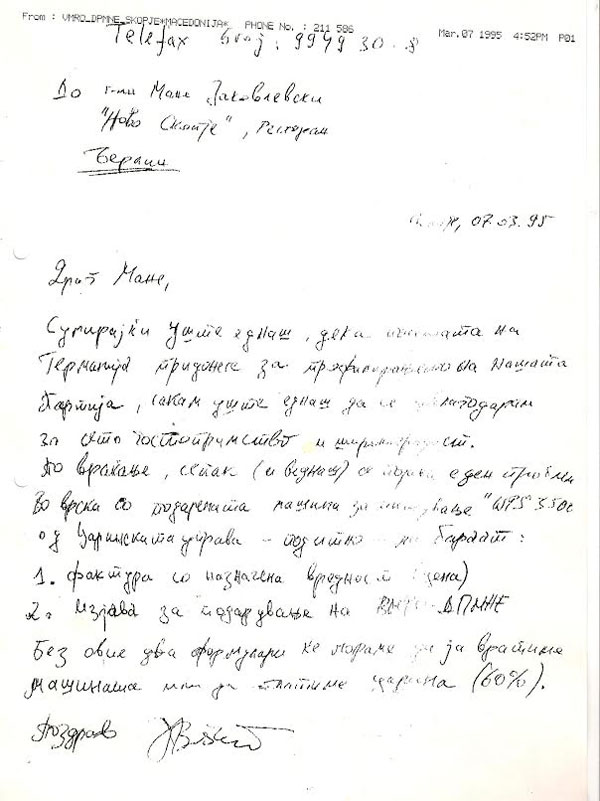 From : VMRO_DPMNE_SKOPJE*MACEDONIJA* PHONE No. : 211 506 Mar.07 1995 4:52PM P01
Telefax број: 9949 30
До г-дин Мане Јаковлевски
"Ново Скопје", Ресторан
Берлин
Скопје, 07.03.95
Драг Мане,
Сумирајќи уште еднаш, дека посетата на
Германија придонесе за профилирањето на нашата
Партија, сакам уште еднаш да се заблагодарам
за сето гостопримство и широкоградост.
По враќање, сепак (и веднаш) се појави еден проблем
Во врска со подарената машина за пишување "WPS 350c
од Царинската управа – подитно – ни бараат:
1. фактура со назначена вредност (цена)
2. Изјава за подарување на ВМРО-ДПМНЕ
Без овие два формулари ќе мораме да ја вратиме
машината или да платиме царина (60%).
Поздрав